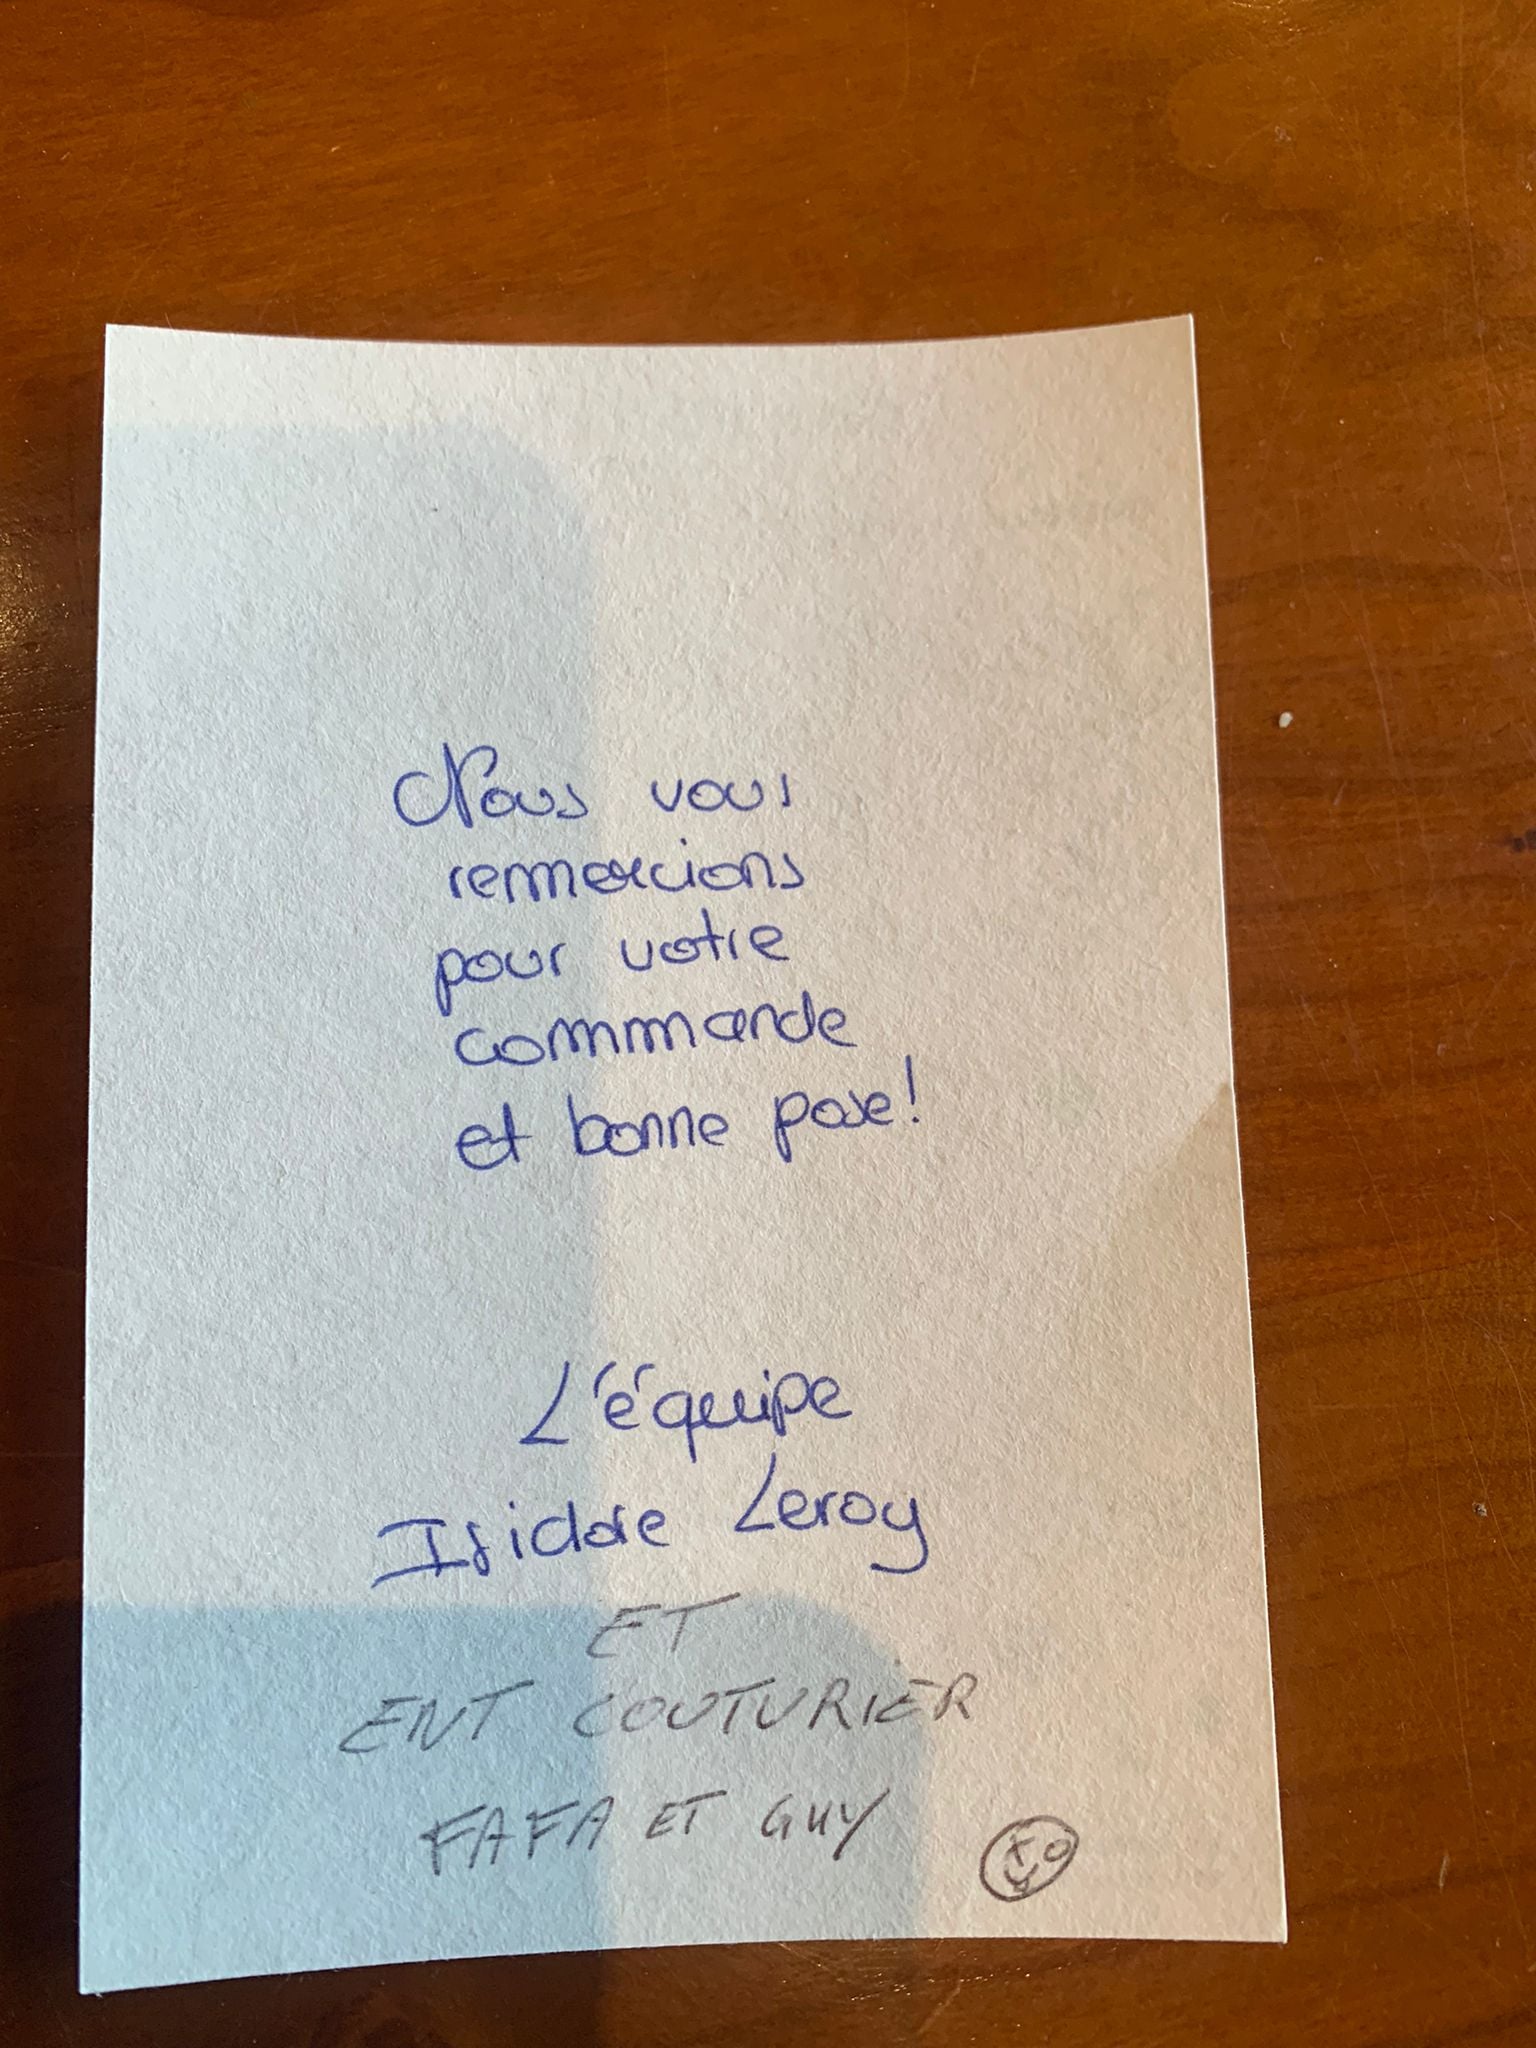 Nous vous
remercions
pour votre
commande
et bonne pose!
L'équipe
Isidore Leroy
ET
ENT COUTURIER
FAFA ET GUY